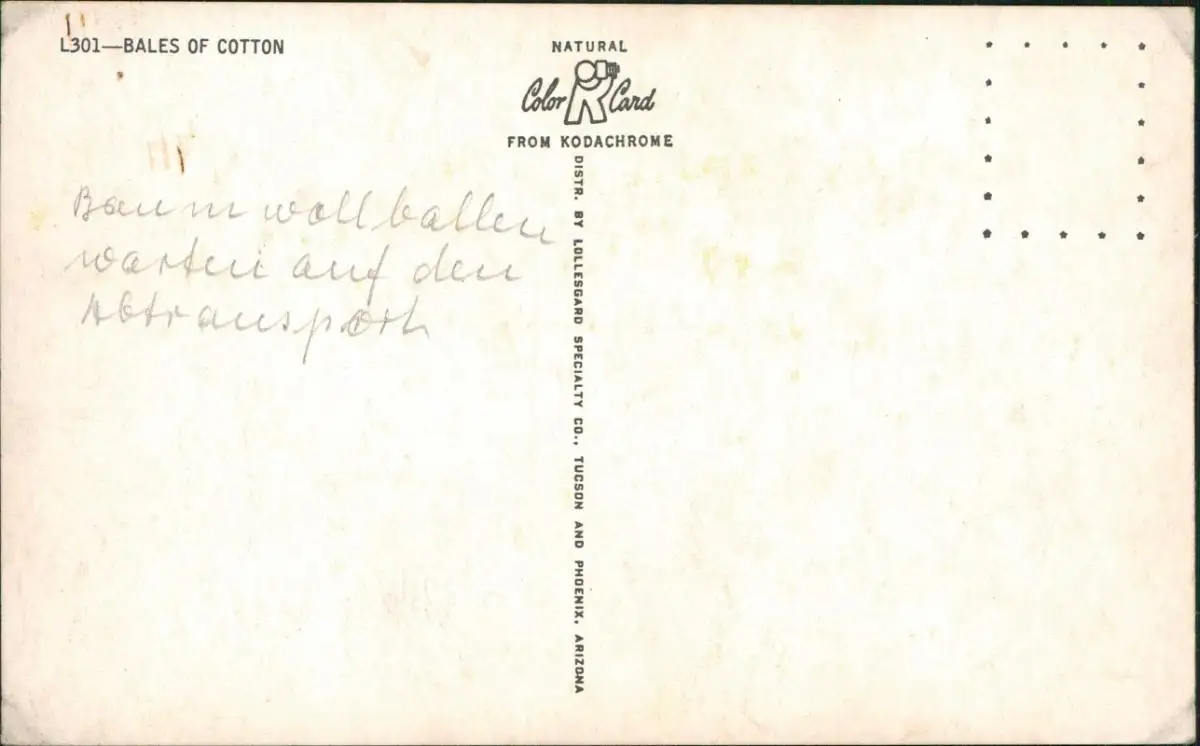 L301—BALES OF COTTON
NATURAL
Color Card
FROM KODACHROME
Baumwollballen
warten auf den
Abtransport
DISTR. BY LOLLESGARD SPECIALTY CO., TUCSON AND PHOENIX, ARIZONA